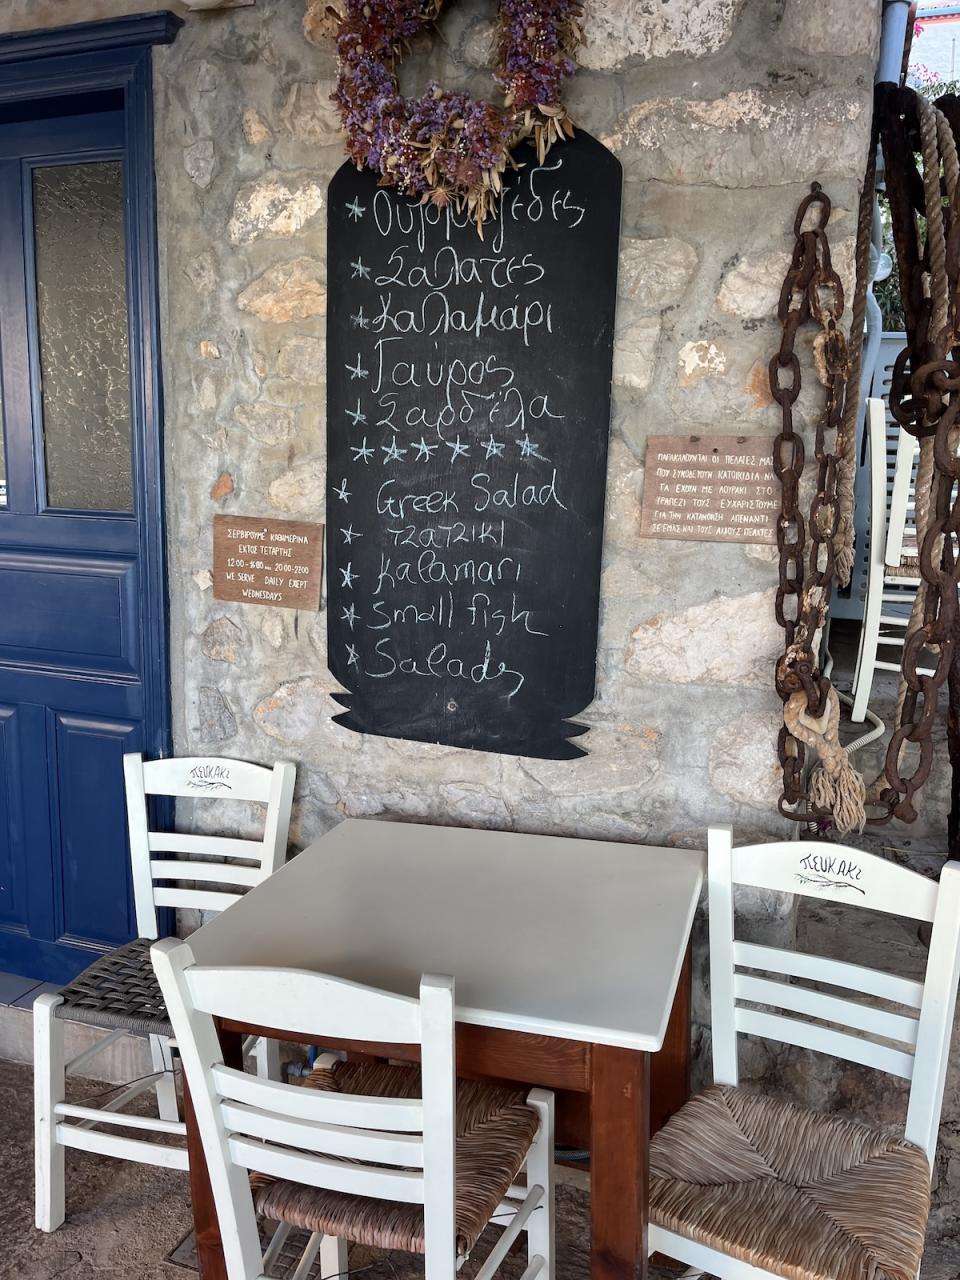 * Σαλάτες
* Καλαμάρι
* Γαύρος
* Σαρδέλα
* * * * * *
* Greek Salad
* TZATZIKI
* Kalamari
* Small fish
* Salads
ΣΕΡΒΙΡΟΥΜΕ ΚΑΘΗΜΕΡΙΝΑ
ΕΚΤΟΣ ΤΕΤΑΡΤΗΣ
12:00-16:00 και 20:00-2200
WE SERVE DAILY EXEPT
WEDNESDAYS
ΠΑΡΑΚΑΛΟΥΝΤΑΙ ΟΙ ΠΕΛΑΤΕΣ ΜΑΣ
ΠΟΥ ΣΥΝΟΔΕΥΟΥΝ ΚΑΤΟΙΚΙΔΙΑ ΝΑ
ΤΑ ΕΧΟΥΝ ΜΕ ΛΟΥΡΑΚΙ ΣΤΟ
ΤΡΑΠΕΖΙ ΤΟΥΣ ΕΥΧΑΡΙΣΤΟΥΜΕ
ΓΙΑ ΤΗΝ ΚΑΤΑΝΟΗΣΗ ΑΠΕΝΑΝΤΙ
ΣΕ ΕΜΑΣ ΚΑΙ ΤΟΥΣ ΑΛΛΟΥΣ ΠΕΛΑΤΕΣ
ΠΕΥΚΑΚΙ
ΠΕΥΚΑΚΙ